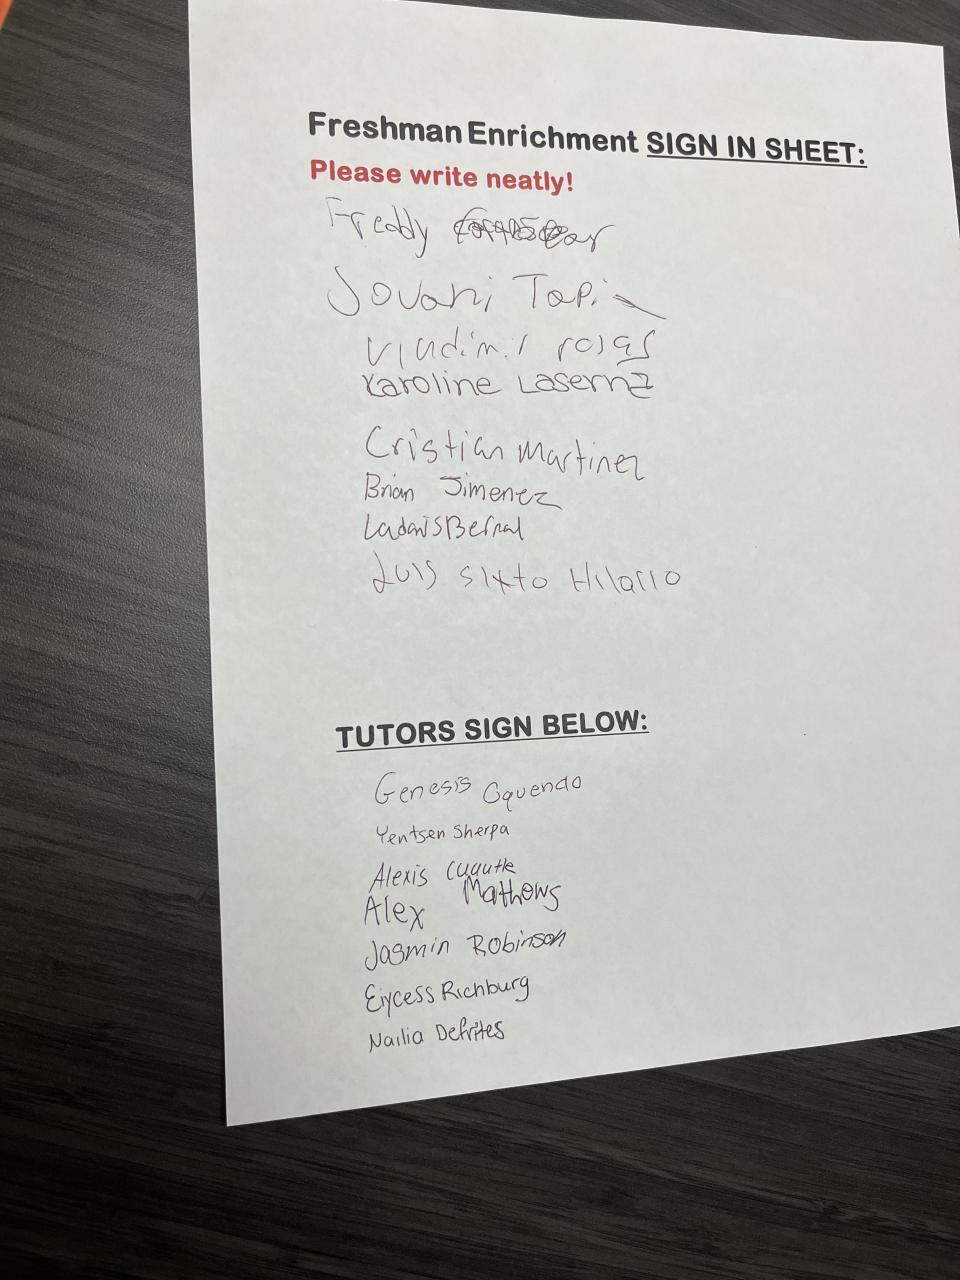 Freshman Enrichment SIGN IN SHEET:
Please write neatly!
Freddy
Jovani Tapia
Vladimir rojas
Karoline Laserna
Cristian Martinez
Brian Jimenez
Ladavis Bernal
Luis sixto Hilario
TUTORS SIGN BELOW:
Genesis Oquendo
Yentsen Sherpa
Alexis Cuautle
Alex Mathews
Jasmin Robinson
Eiycess Richburg
Nailia Defrites